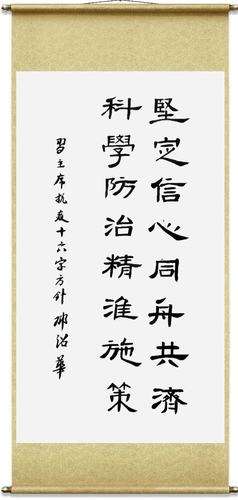 堅定信心同舟共濟
科學防治精准施策
習主席抗疫十六字方针 華